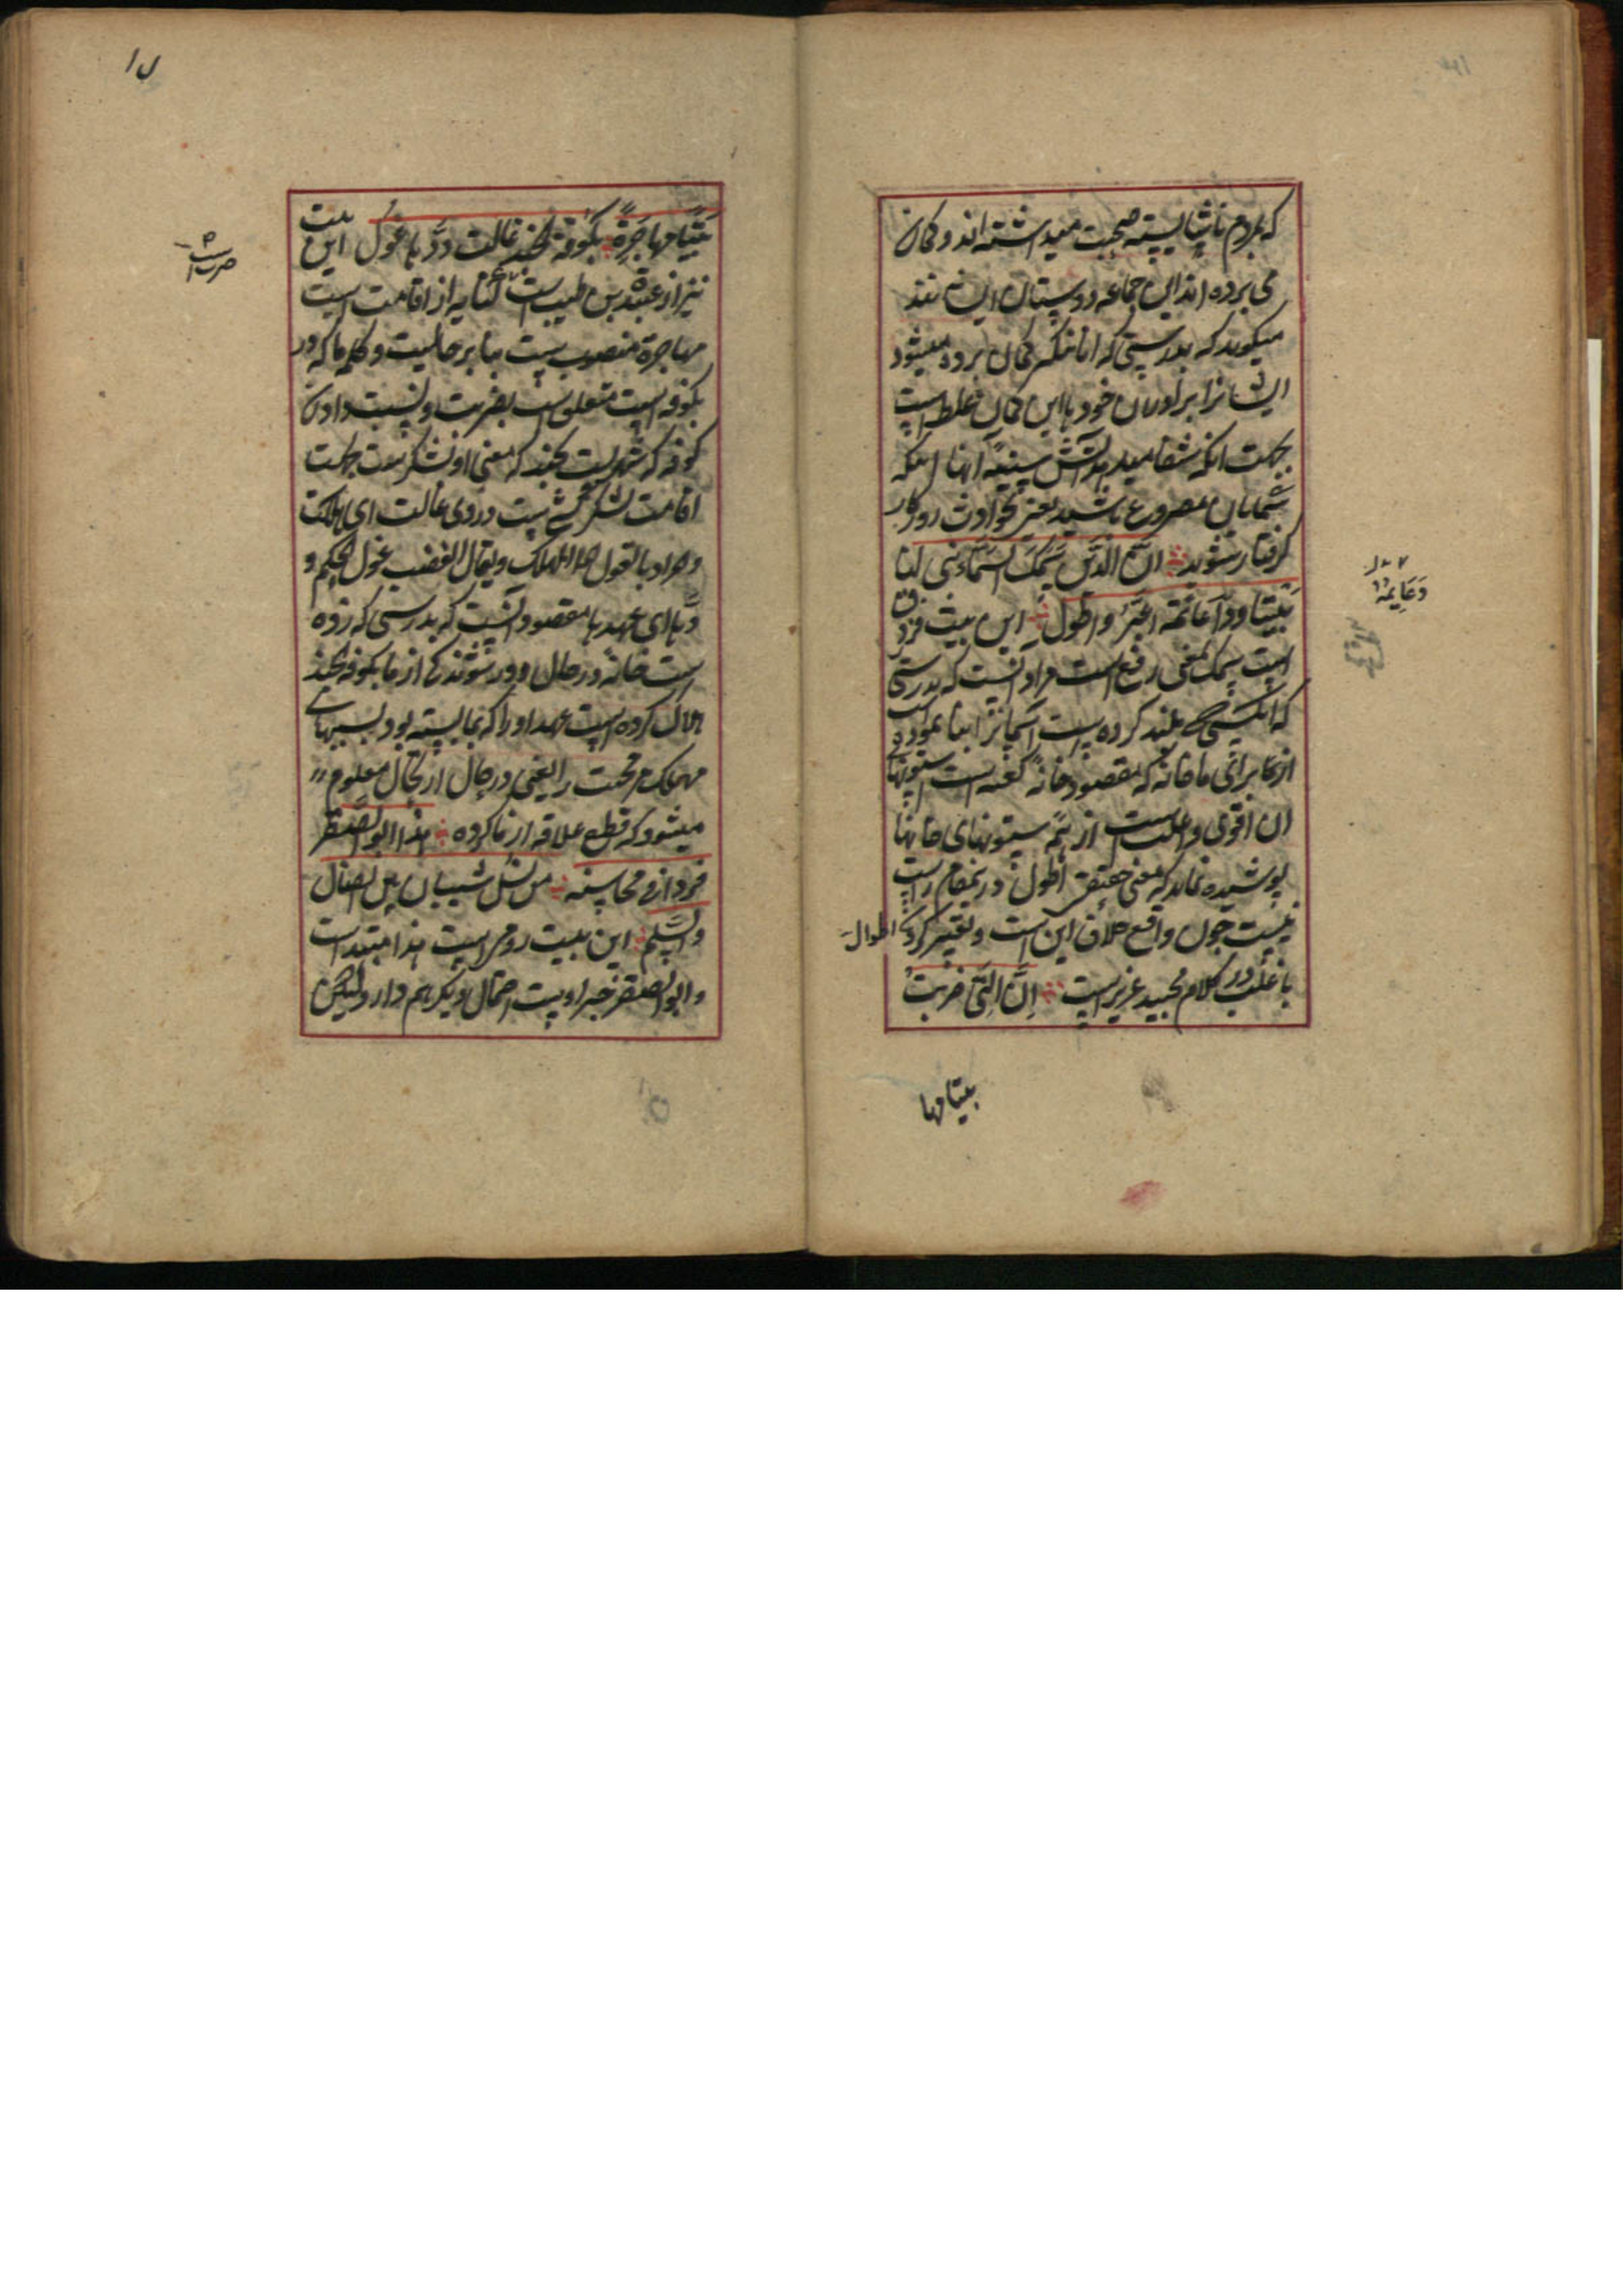 که بمردم ناشایسته صحبت میداشته اند و کمان
می برده اند این جماعه دوستان ایشانند
میکوید که بدرستی که انانکه کمان برده میشود
ایشانرا برادران خود با این کمان غلط است
بجهت انکه شفا میدهد اتش سینه انها اینکه
شمایان مصروع باشید یعنی بحوادث روزکار
کرفتار شوید ان الذی سمک السماء بنی لنا
بیتا دعائمه اعز واطول این بیت فرزدق
است سمک بمعنی رفع است مراد انست که بدرستی
که انکسی که بلند کرده است آسمانرا بنا نموده است
از برای ما خانه که مقصود خانه کعبه است ستونهای
ان اقوی و است از همه ستونهای خانها
پوشیده نماند که معنی حقیقی اطول درینمقام راست
نیست چون واقع خلاف این است و تفسیر کرده اطوال
با در کلام مجید عزیز است اِنَّ الَّتِی ضربتْ
بیتا مها
دَعَایِمُهٗ
۱۷
بَیتًا مهاجَرةً بکوفة الجند غالت ودّها غول این بیت
نیز از عبدة بن طبیب است کنایه از اقامت است
مهاجرة منصوب است بنا بر حالیت و کلمه با که در
بکوفه است متعلق است بضربت و نسبت دادن
کوفه که شهریست بجند که معنی او لشکر است بجهت
اقامت لشکر است در وی غالت ای اهلکت
و مراد بالغول هنا المهلک ویقال الغضب غول الحلم و
ودّها ای عهدها مقصود آنست که بدرستی که زده
است خانه در حال دور شوندکی از ما بکوفه الجند
هلاک کرده است عهد او را که بما بسته بود سببهای
مهلک محبت را یعنی در حال ارتحال معلوم
میشود که قطع علاقه از ما کرده هذا ابو الصقر
فردا فی محاسنه من نسل شیبان بین الضال
والسلم این بیت رومی است هذا مبتدا است
و ابو الصقر خبر اوست احتمال دیکر هم دارد لیکن